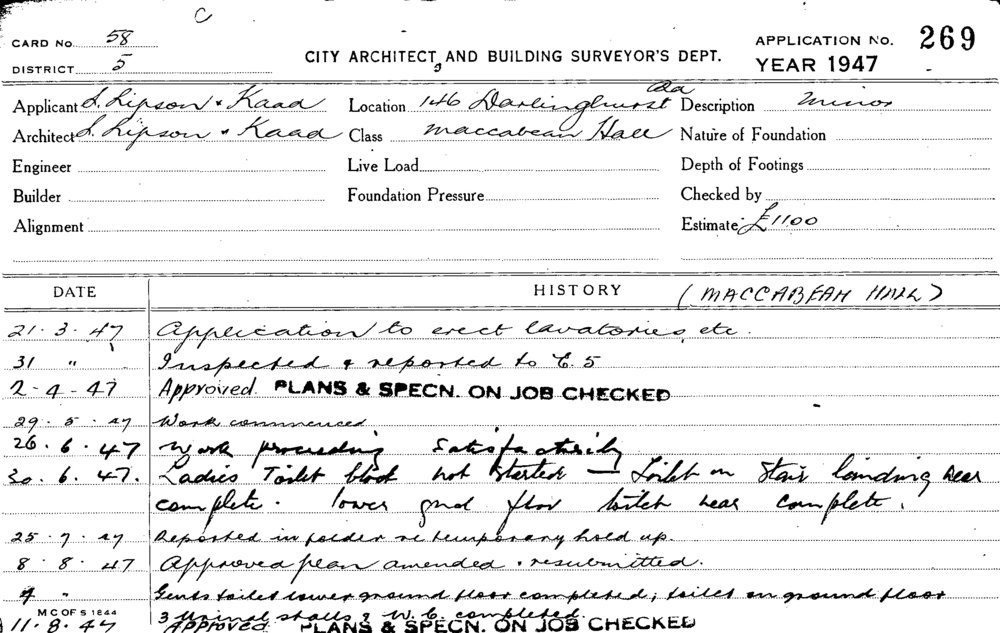 C
CARD No. 58
DISTRICT 5
CITY ARCHITECT, AND BUILDING SURVEYOR'S DEPT.
APPLICATION No. 269
YEAR 1947
Applicant S. Lipson & Kaad Location 146 Darlinghurst Rd Description Minor
Architect S. Lipson & Kaad Class Maccabean Hall Nature of Foundation
Engineer Live Load Depth of Footings
Builder Foundation Pressure Checked by
Alignment Estimate £1100
DATE HISTORY (MACCABEAN HALL)
21.3.47 Application to erect lavatories, etc.
31 " Inspected & reported to C.5
2-4-47 Approved. PLANS & SPECN. ON JOB CHECKED
29.5.47 Work commenced
26.6.47 Work proceeding satisfactorily
30.6.47. Ladies Toilet block not started — Toilet on Stair landing near
complete. lower grnd floor toilet near complete.
25.7.47 Reported in folder re temporary hold up.
8.8.47 Approved plan amended & resubmitted.
" Gents toilet lower ground floor completed, toilet on ground floor
3 Urinal stalls & W.C. completed.
M C OF S 1844
11.8.47 APPROVED PLANS & SPECN. ON JOB CHECKED